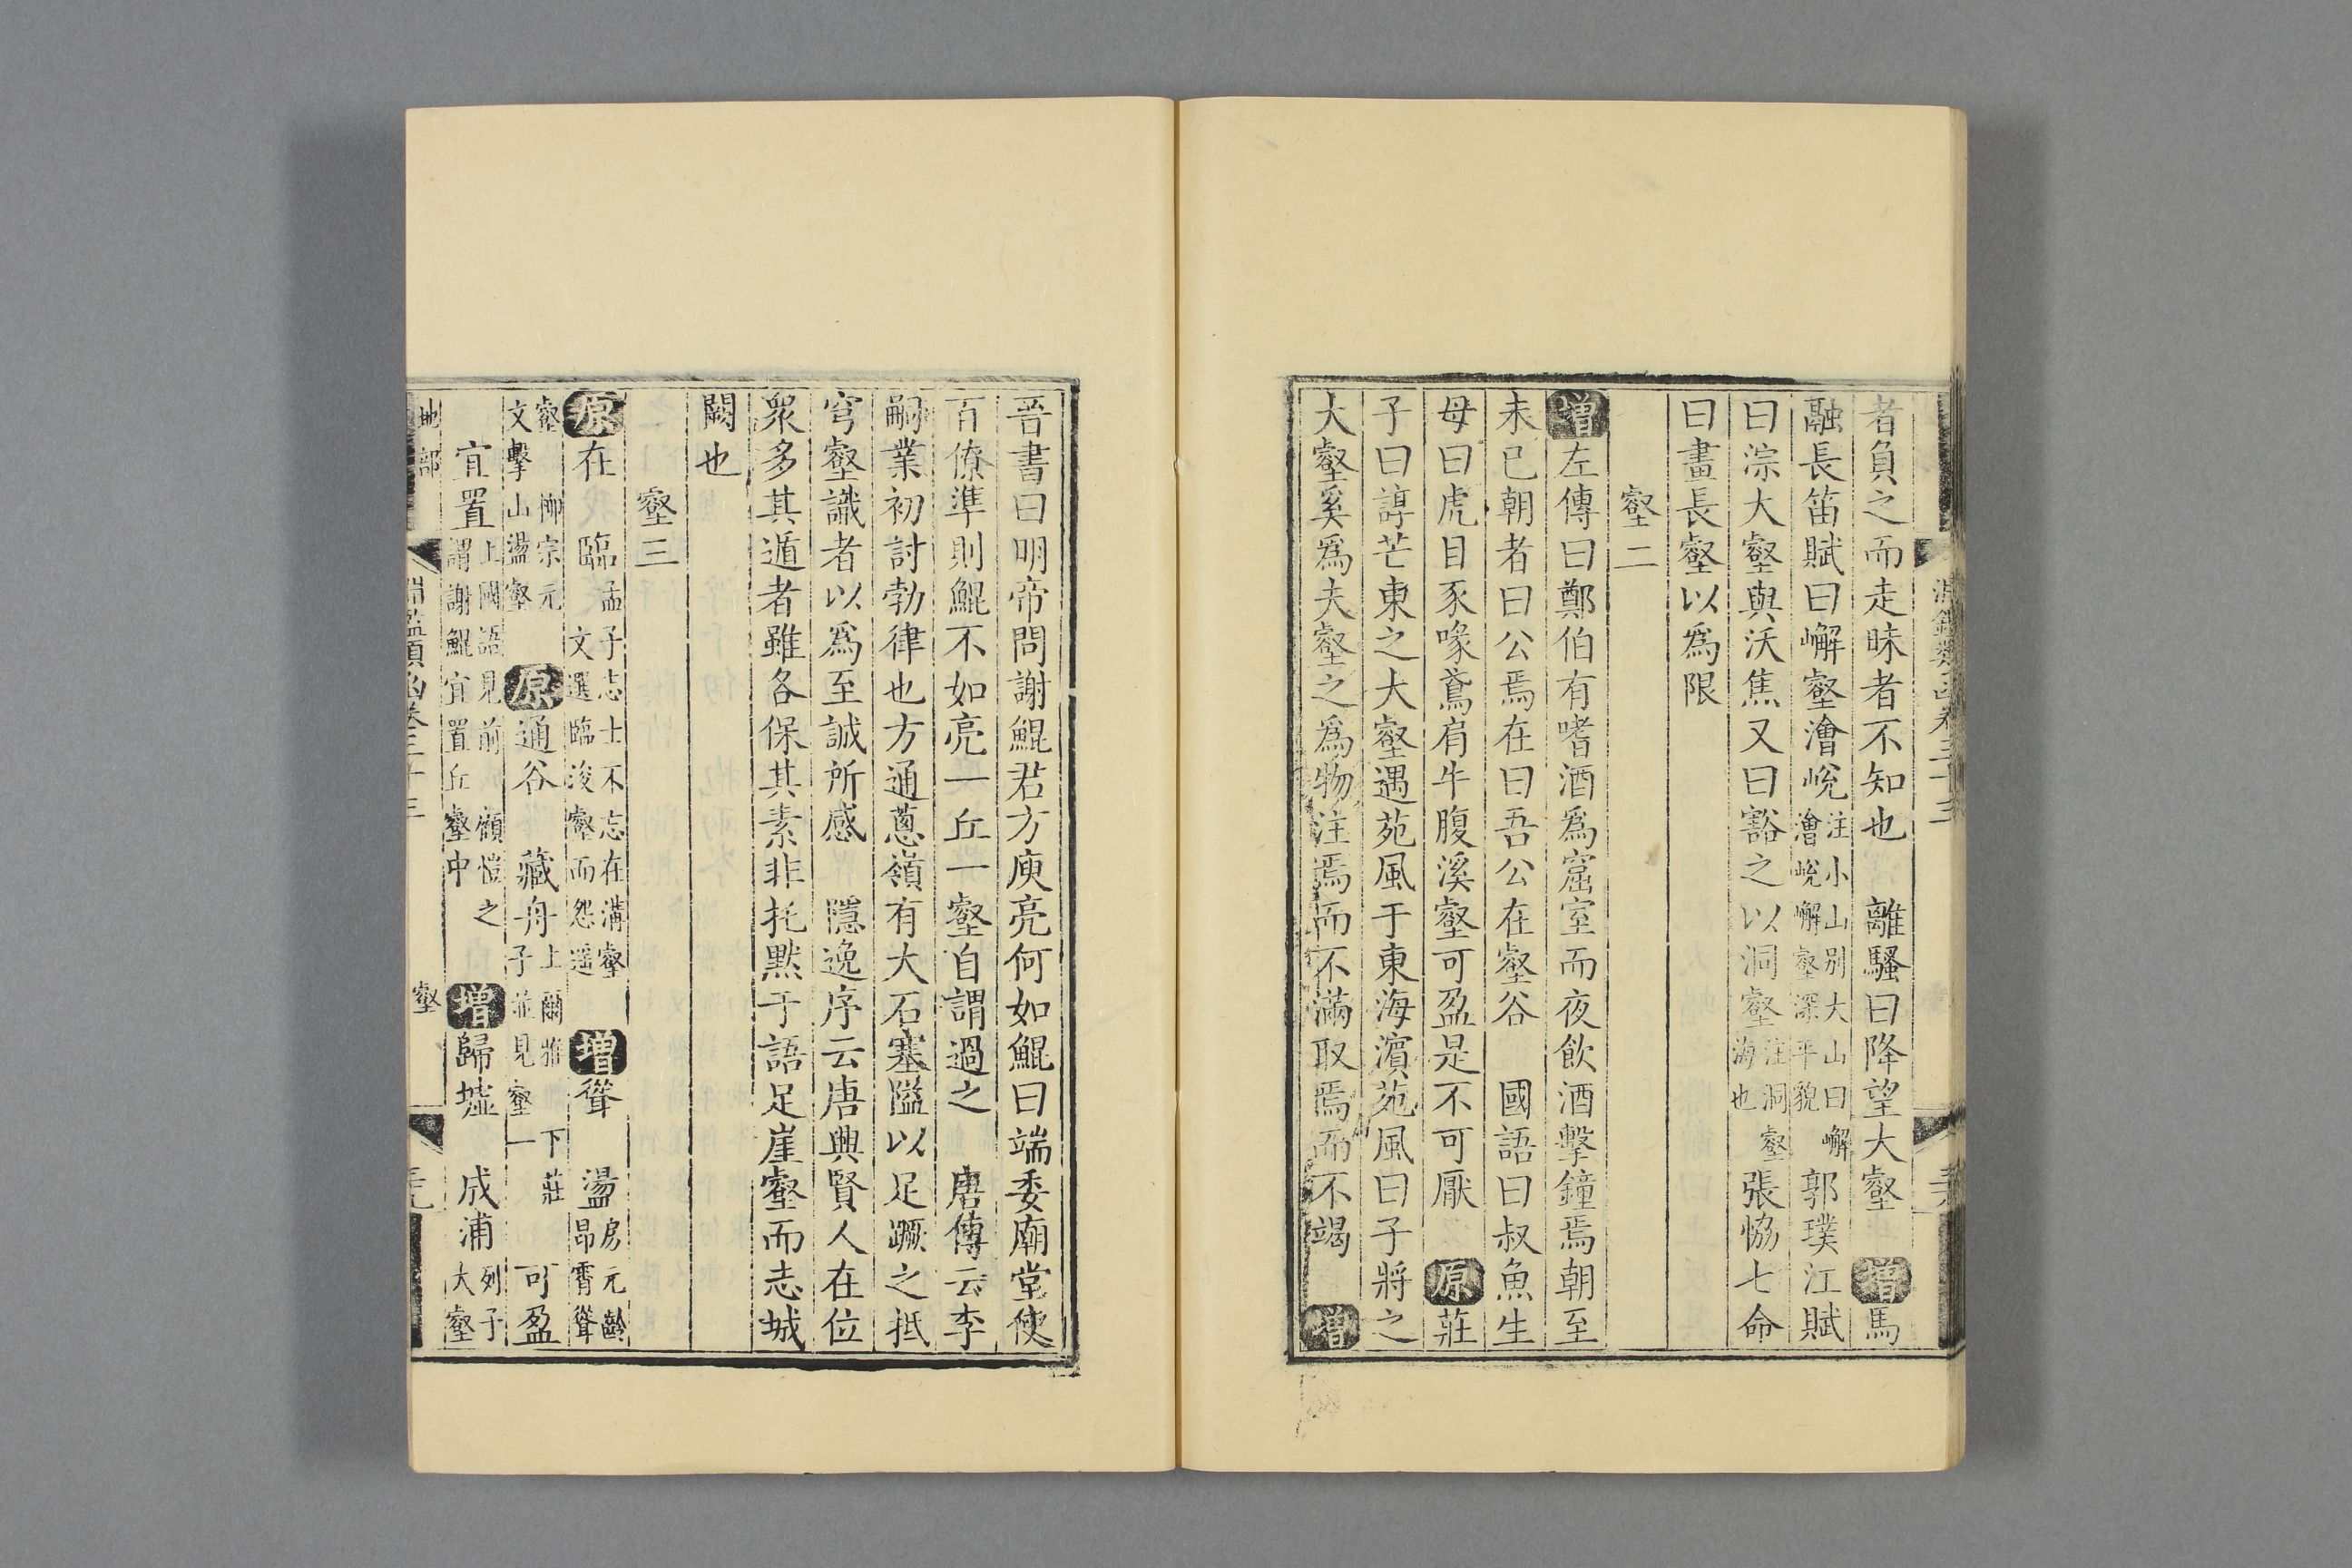 者負之而走昧者不知也 離騷曰降望大壑 增馬
融長笛賦曰嶰壑澮峗注小山別大山曰嶰澮峗嶰壑深平貌 郭璞江賦
曰淙大壑與沃焦又曰豁之以洞壑注洞壑海也 張恊七命
曰畫長壑以爲限
壑二
增左傳曰鄭伯有嗜酒爲窟室而夜飲酒擊鐘焉朝至
未已朝者曰公焉在曰吾公在壑谷 國語曰叔魚生
母曰虎目豕喙鳶肩牛腹溪壑可盈是不可厭 原莊
子曰諄芒東之大壑遇苑風于東海濵苑風曰子將之
大壑奚爲夫壑之爲物注焉而不滿取焉而不竭 增
晉書曰明帝問謝鯤君方庾亮何如鯤曰端委廟堂使
百僚準則鯤不如亮一丘一壑自謂過之 唐傳云李
嗣業初討勃律也方通蔥嶺有大石塞隘以足蹶之抵
穹壑識者以爲至誠所感 隱逸序云唐興賢人在位
衆多其遁者雖各保其素非托黙于語足崖壑而志城
闕也
壑三
原在 臨孟子志士不忘在溝壑文選臨浚壑而怨遥 增聳 盪房元齡昂霄聳
壑 柳宗元文擊山盪壑 原通谷 藏舟上爾雅下莊子並見壑一 可盈
上國語見前 宜置顧愷之謂謝鯤宜置丘壑中 增歸墟 成浦列子大壑
地部 淵鑑類函卷三十三 壑